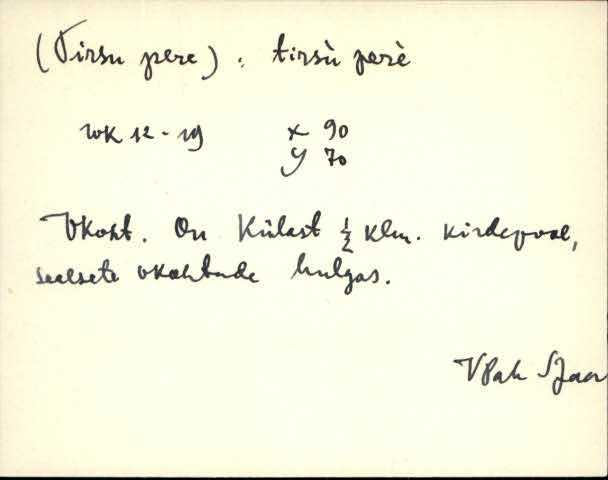 (Tirsu pere). tirsù perè
WK 12-19 x 90
y 70
Vkoht. On Külast ½ klm. kirdepool,
sealsete vkohtade hulgas.
VPah SJaan